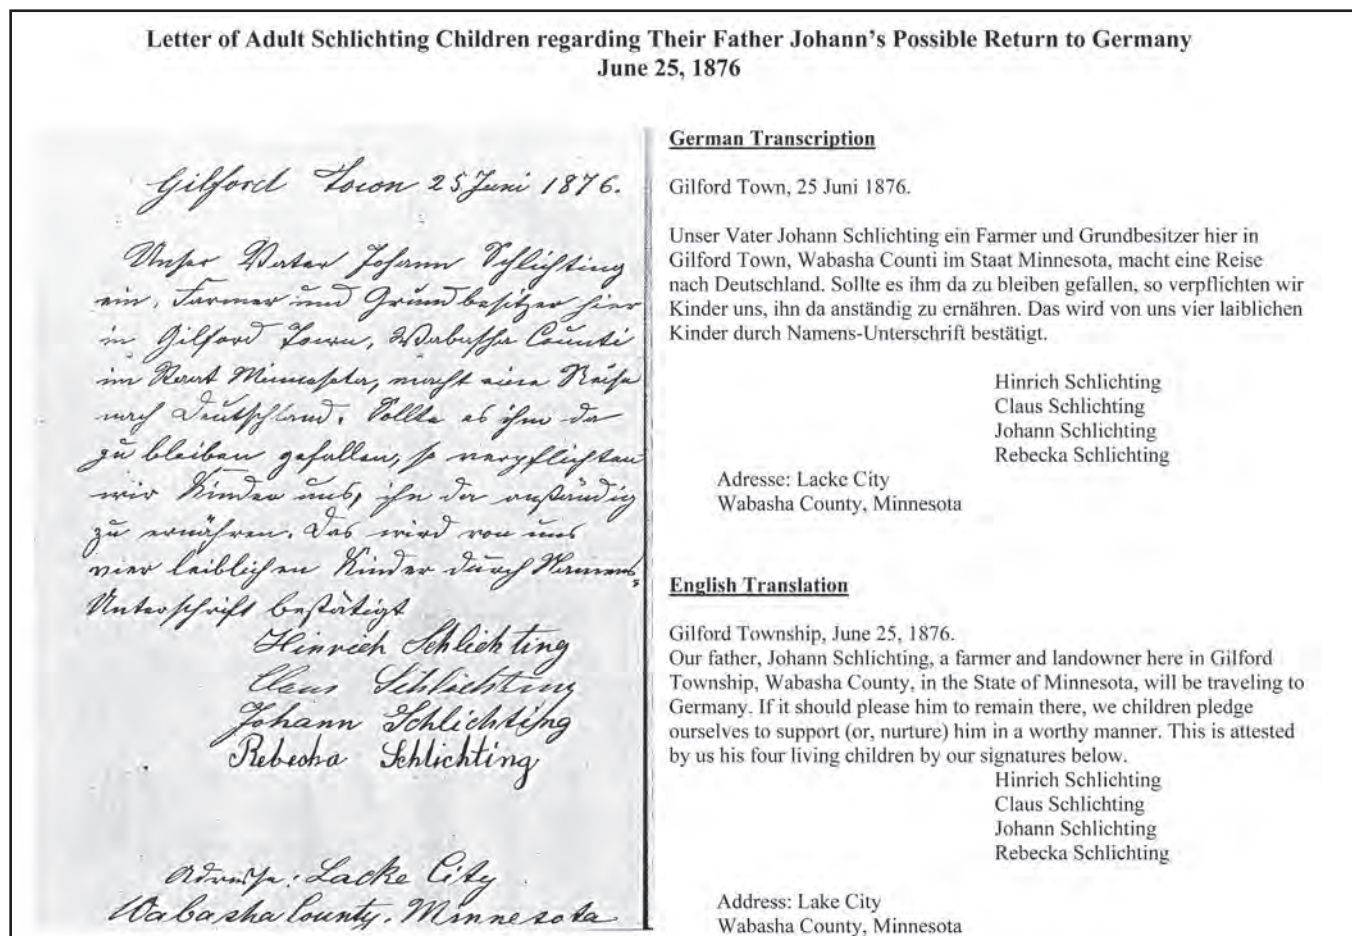 Letter of Adult Schlichting Children regarding Their Father Johann's Possible Return to Germany
June 25, 1876
Gilford Town 25 Juni 1876.
Unser Vater Johann Schlichting
ein, Farmer und Grundbesitzer hier
in Gilford Town, Wabasha Counti
im Staat Minnesota, macht eine Reise
nach Deutschland. Sollte es ihm da
zu bleiben gefallen, so verpflichten
wir Kinder uns, ihn da anständig
zu ernähren. Das wird von uns
vier leiblichen Kinder durch Namens-
Unterschrift bestätigt
Hinrich Schlichting
Claus Schlichting
Johann Schlichting
Rebecka Schlichting
Adresse: Lacke City
Wabasha County. Minnesota
German Transcription
Gilford Town, 25 Juni 1876.
Unser Vater Johann Schlichting ein Farmer und Grundbesitzer hier in
Gilford Town, Wabasha Counti im Staat Minnesota, macht eine Reise
nach Deutschland. Sollte es ihm da zu bleiben gefallen, so verpflichten wir
Kinder uns, ihn da anständig zu ernähren. Das wird von uns vier laiblichen
Kinder durch Namens-Unterschrift bestätigt.
Hinrich Schlichting
Claus Schlichting
Johann Schlichting
Rebecka Schlichting
Adresse: Lacke City
Wabasha County, Minnesota
English Translation
Gilford Township, June 25, 1876.
Our father, Johann Schlichting, a farmer and landowner here in Gilford
Township, Wabasha County, in the State of Minnesota, will be traveling to
Germany. If it should please him to remain there, we children pledge
ourselves to support (or, nurture) him in a worthy manner. This is attested
by us his four living children by our signatures below.
Hinrich Schlichting
Claus Schlichting
Johann Schlichting
Rebecka Schlichting
Address: Lake City
Wabasha County, Minnesota